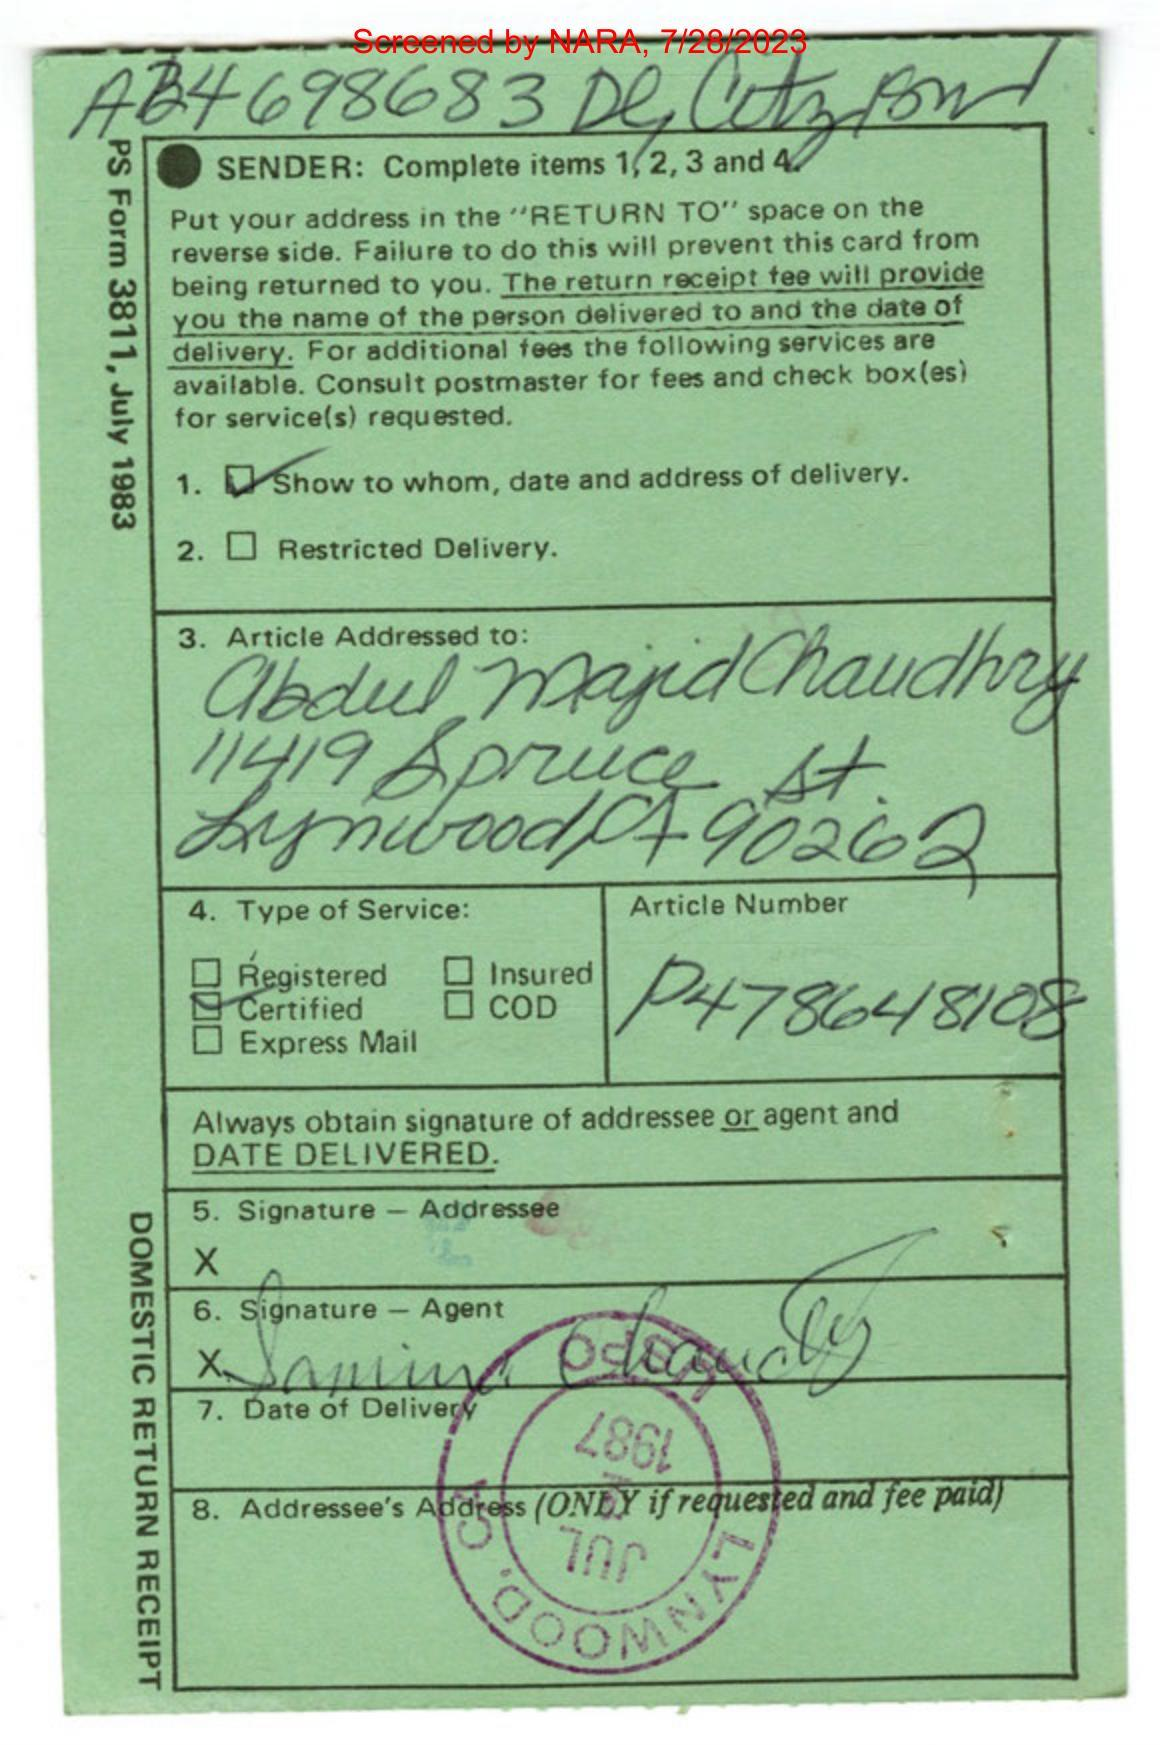 Screened by NARA, 7/28/2023
A24698683
PS Form 3811, July 1983
SENDER: Complete items 1, 2, 3 and 4.
Put your address in the "RETURN TO" space on the
reverse side. Failure to do this will prevent this card from
being returned to you. The return receipt fee will provide
you the name of the person delivered to and the date of
delivery. For additional fees the following services are
available. Consult postmaster for fees and check box(es)
for service(s) requested.
1. Show to whom, date and address of delivery.
2. Restricted Delivery.
3. Article Addressed to:
Abdul Majid Chaudhry
11419 Spruce St.
Lynwood, CA 90262
4. Type of Service:
Registered
Insured
Certified
COD
Express Mail
Article Number
P478648108
Always obtain signature of addressee or agent and
DATE DELIVERED.
5. Signature – Addressee
X
6. Signature – Agent
X
7. Date of Delivery
8. Addressee's Address (ONLY if requested and fee paid)
LYNWOOD, CA
JUL
1987
USPO
DOMESTIC RETURN RECEIPT